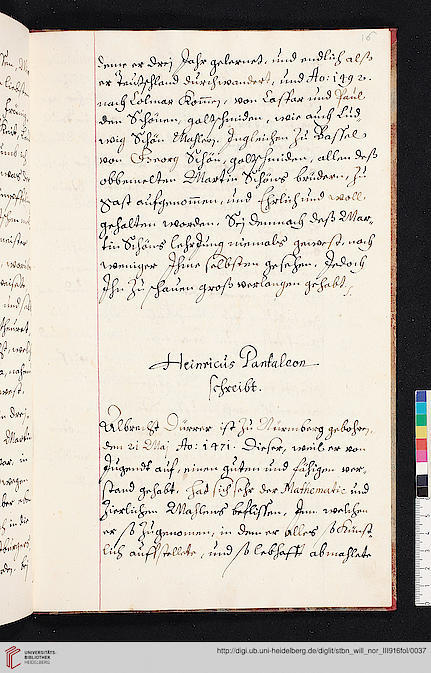 16
deme er drej Jahr gelernet, und endlich alß
er Teutschland durchwandert, und Ao: 1492.
nach Colmar kommen, von Caspar und Paul
den Schönen, goltschmiden, wie auch Lud
wig Schön Mahlern. Ingleichen zu Bassel
von Georg Schön, goltschmiden, allen deß
obbemelten Martin Schöns brüdern, zu
gast aufgenommen, und Ehrlich und woll
gehalten worden. Sej demnach deß Mar,
tin Schöns lehrJung niemals gewest, noch
weniger Ihme selbsten gesehen. Jedoch
Ihn zu schauen groß verlangen gehabt.
Heinricus Pantaleon
schreibt.
Albrecht Dürrer ist zu Nürmberg gebohren,
den 21 Maj Ao: 1471. Dieser, weil er von
Jugendt auf, einen guten und fähigen ver,
stand gehabt, hat sich sehr der Mathematic und
zierlichen Mahlens beflissen, dem welchen
er so zugenommen, in dem er alles so künst,
lich auffstellete, und so lebhafft abmahlete
UNIVERSITÄTS-
BIBLIOTHEK
HEIDELBERG
http://digi.ub.uni-heidelberg.de/diglit/stbn_will_nor_III916fol/0037